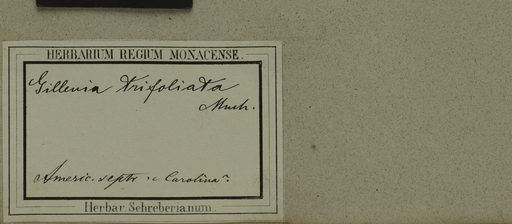 HERBARIUM REGIUM MONACENSE.
Gillenia trifoliata
Much.
Americ. septr. Carolina
Herbar. Schreberianum.